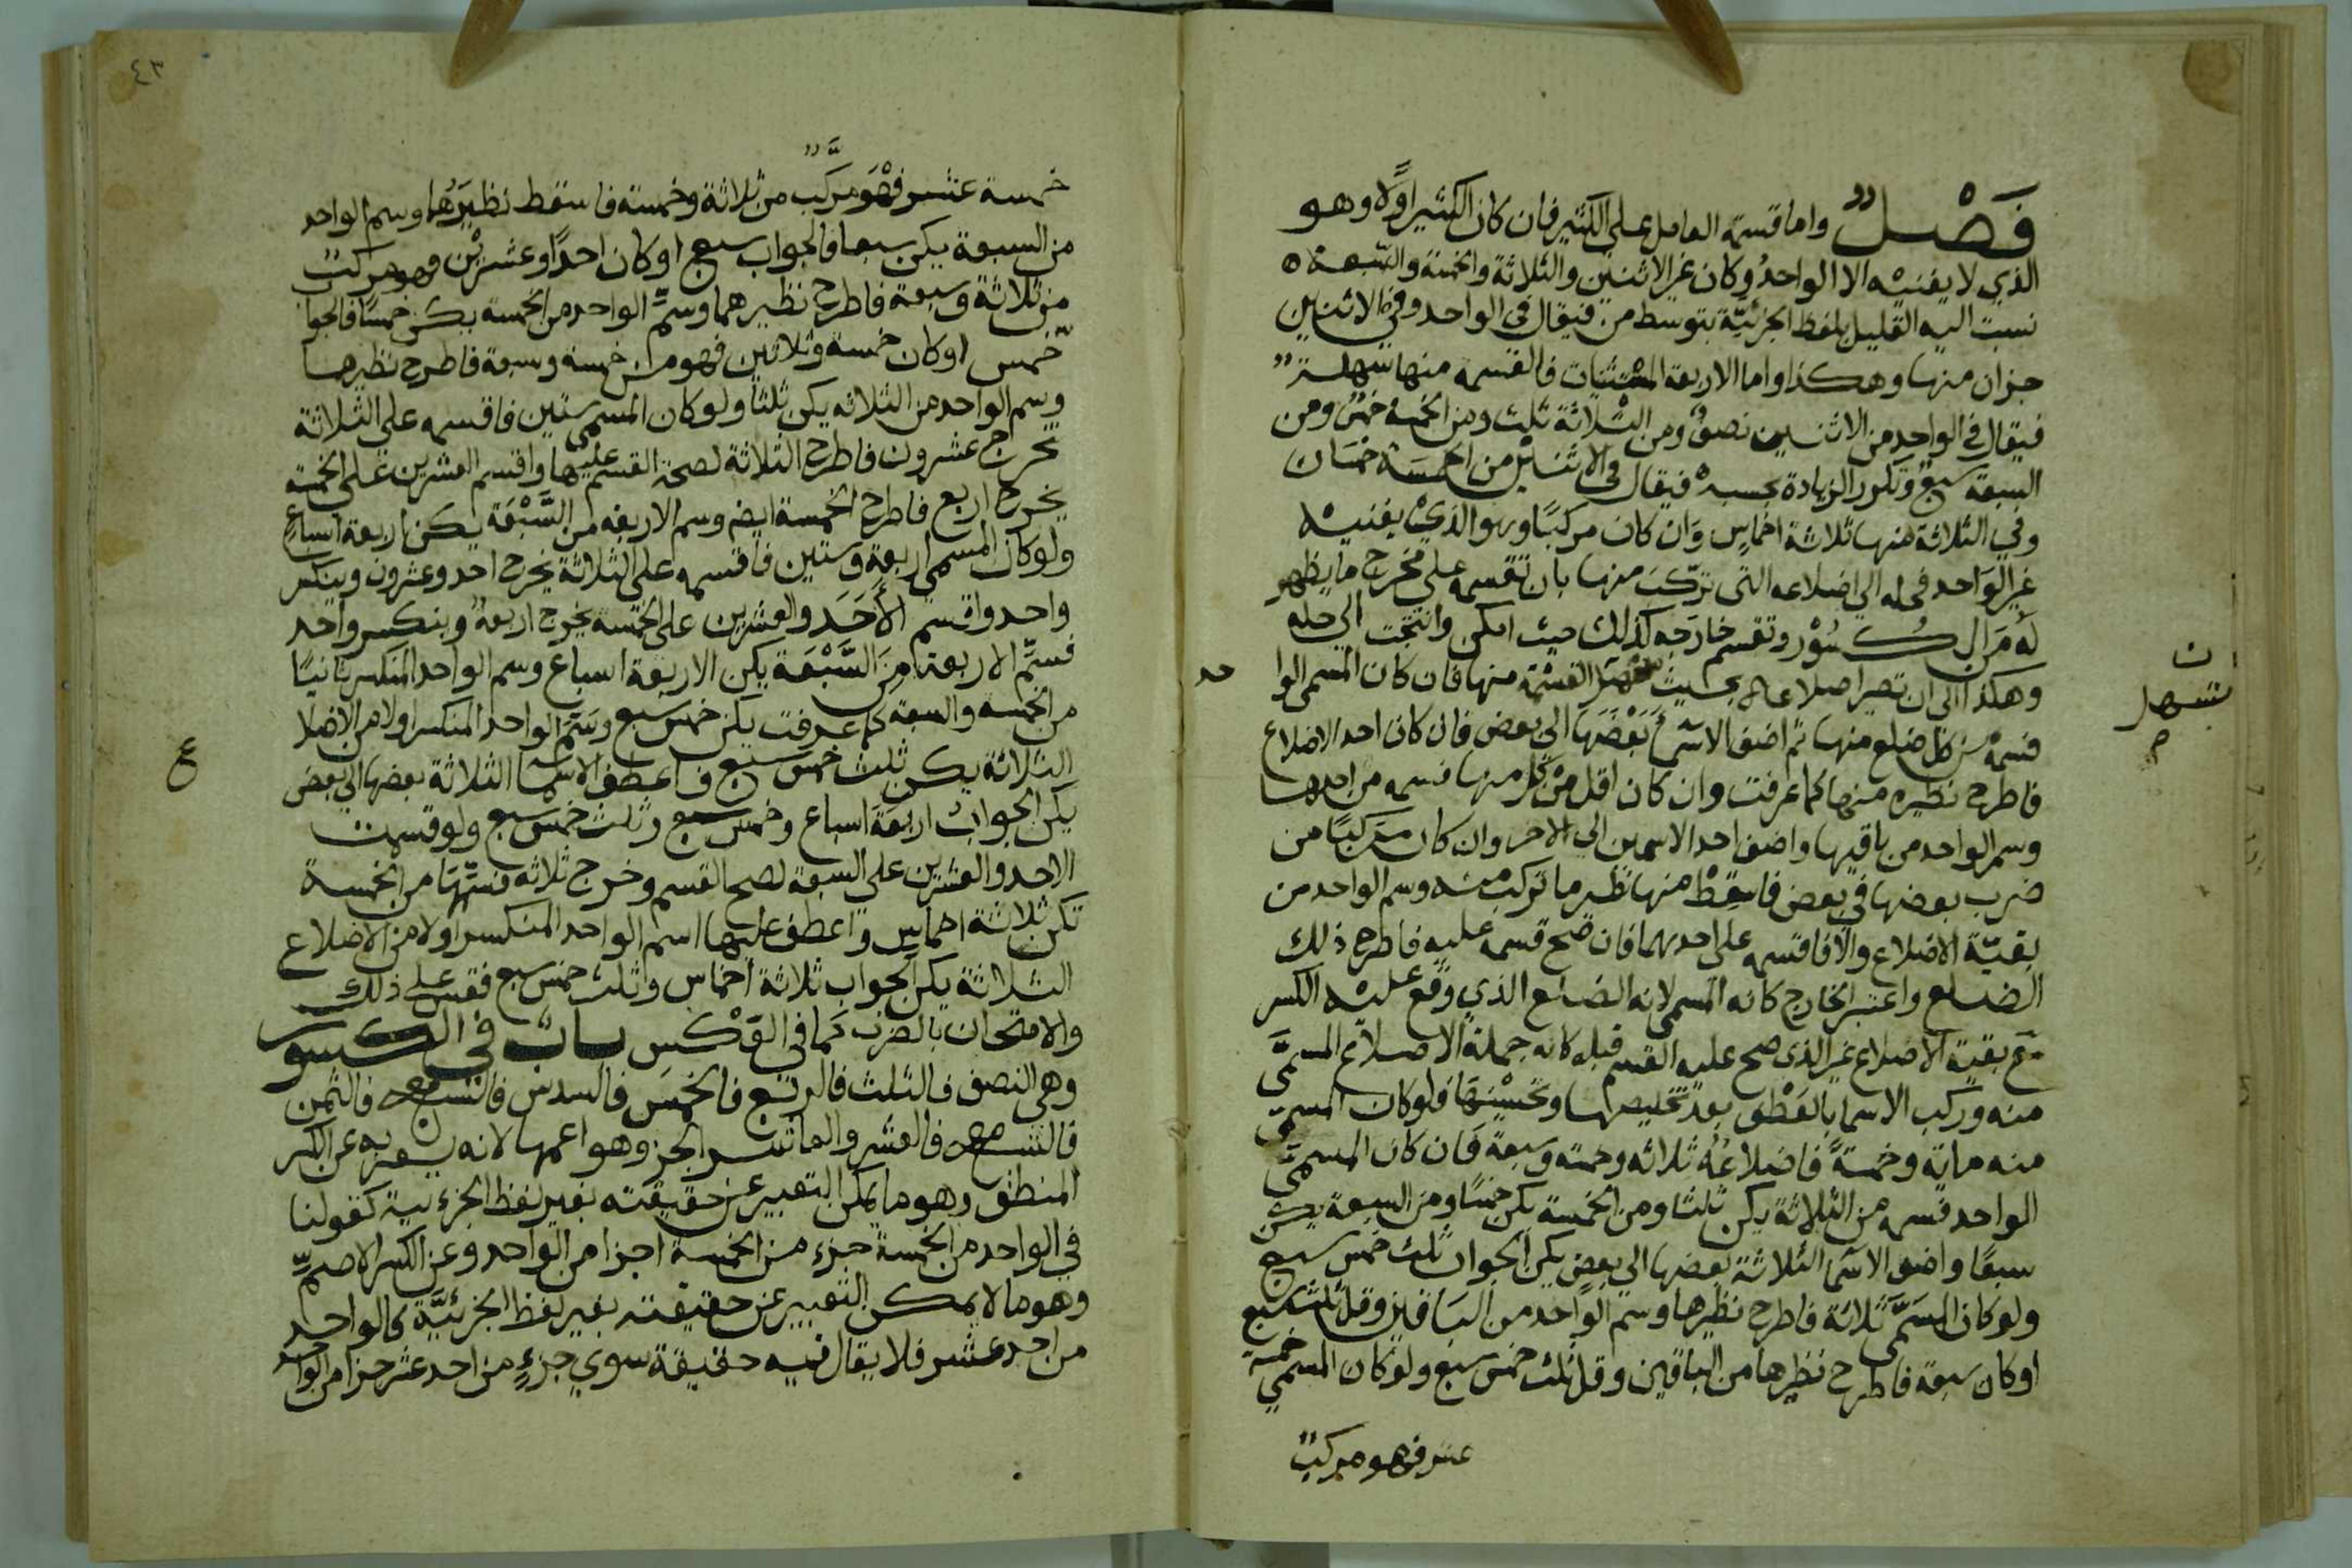 فَصْلٌ واما قسمة العامل على الكثير فان كان الكثير اوَّلا وهو
الذي لا يفنيه الا الواحدُ وكان غير الاثنين والثلاثة والخمسة والسّبعة
نسبت اليه القليل بلفظ الجزئيّة بتوسط من فيقال في الواحد وفي الاثنين
جزان منها وهكذا واما الاربعة المستثنات فالقسمه منها سهلة
فيقال في الواحد من الاثنين نصفٌ ومن الثلاثة ثلث ومن الخمسة خمسٌ ومن
السبعة سبعٌ وتكرر الزيادة بحسبه فيقال في الاثنين من الخمسة خمسان
وفي الثلاثة منها ثلاثة اخماسٍ وَان كان مركبًا وهو الذيْ يفنيه
غير الوَاحد فحله الي اضلاعه التى تركّبَ منها بان تقسمه على مخرج ما يظهر
لَهُ مَن الكُسُوْر وتقسم خارجَه كذلك حيث امكن وانتجت الي حله
وهكذا الى ان تصير اضلاعا بحسيث القسْمَة منها فان كان المسمى الوا
حد
ن
تسهل
فسمهْ من كل ضلع منها ثم اضف الاسْمآ بَعْضَهَا الي بعض فان كان احد الاضلاع
فاطرح نظيره منها كما عرفت وان كان اقل مِنْ كلٍ منها فسمه من احدها
وسم الواحد من باقيها واضف احد الاسمين الي الاخر وان كان مركبًا من
ضرب بعضها في بعض فاسقِطْ منها نظير ما تركب منه وسم الواحد من
بقيّة الاضلاع والا فاقسمه على احدهما فان صَح قسمه عليه فاطرح ذلك
الضلع واعتبر الخارج كانه المسمى لانه الضلع الذي وقع عليْه الكسر
مَعَ بقيّة الاضلاع غير الذى صح عليه القسم قبله كانه جملة الاضلاع المسمَّى
منه وركب الاسما بالعَطْف بعد تخليصها وتحسْيْنِهَا فلوكان المسمى
منه ماية وخمسةً فاضلاعُهُ ثلاثه وخمسه وسبعة فَان كان المسمىّ
الواحد فسمه من الثلاثة يكن ثلثا ومن الخمسة يكن خمسًا ومن السبعة يكن
سبعًا واضف الاسما الثلاثة بعضها الي بعضٍ يكن الجواب ثلث خمس سبع
ولو كان المسَمَّى ثلاثة فاطرح نظيرها وسم الواحد من البَاقين وقل خمس سبع
اوكان سبعة فاطرح نظيرها من الباقين وقل ثلث خمس سبع ولو كان المسمى خمسة
عشر فهو مركبٌ
٤٣
خمسة عشر فَهْوَ مركَّبٌ من ثلاثة وخمسة فاسقط نظيرَهُما وسم الواحد
من السبعة يكن سبعا فالجواب سبع او كان احدًا وعشرْين وهو مركبٌ
من ثلاثة وسبعة فاطرح نظيرهما وسمِّ الواحد من الخمسة يكن خمسًا فالجوا
ب خمس او كان خمسة وثلاثين فهو من خمسة وسبعة فاطرح نظيرهما
وسم الواحد من الثلاثه يكن ثلثا ولو كان المسمى ستين فاقسمه على الثلاثة
يخرج عشرون فاطرح الثلاثة لصحة القسم عليها واقسم العشرين على الخمسة
يخرج اربع فاطرح الخمسة ايضا وسم الاربعه من السَّبْعَة يكن اربعة اسباعٍ
ولو كان المسمى اربعة وستين فاقسمه على الثلاثة يخرج احد وعشرون وينكسر
واحد واقسم الأحَدَ والعشرين على الخمسة يخرج اربعة وينكسر واحد
فسمِّ الاربعة مِنَ السَّبْعَة يكن الاربعة اسباع وسم الواحد المنكسر ثانيًا
من الخمسه والسبعة كما عرفت يكن خمس سبع وسَمِّ الواحد المنكسر اولا من الاضلا
ع
الثلاثة يكن ثلث خمس سبع فاعطف الاسما الثلاثة بعضها الي بعض
يكن الجوابُ اربعَة اسباع وخمس سبع وثلث خمس سبع ولو قسمت
الاحد والعشرين على السبعة لصح القسم وخرج ثلاثه فسمّهَا من الخمسة
تكن ثلاثة اخماسٍ واعطف عليها اسم الواحد المنكسر اولا من الاضلاع
الثلاثة يكن الجواب ثلاثة اخماس وثلث خمس سبع فقس على ذلك
والامتحان بالضرب كما في العَكْس بابٌ في الكسور
وهي النصف فالثلث فالربْع فالخمسَ فالسدس فالسبع فالثمن
فالتسع فالعشر والعاشر الجزء وهو اعمها لانه يعبر به عن الكسر
المنطق وهو ما يمكن التعبير عن حقيقته بغير لفظ الجزءية كقولنا
في الواحد من الخمسة جزء من الخمسة اجزا من الواحد وعن الكسر الاصمِّ
وهو ما لا يمكن التعبير عن حقيقته بغير لفظ الجزئيَّة كالواحد
من احد عشر فلا يقال فيه حقيقة سوي جزءٍ من احد عشر جزا من الواحد